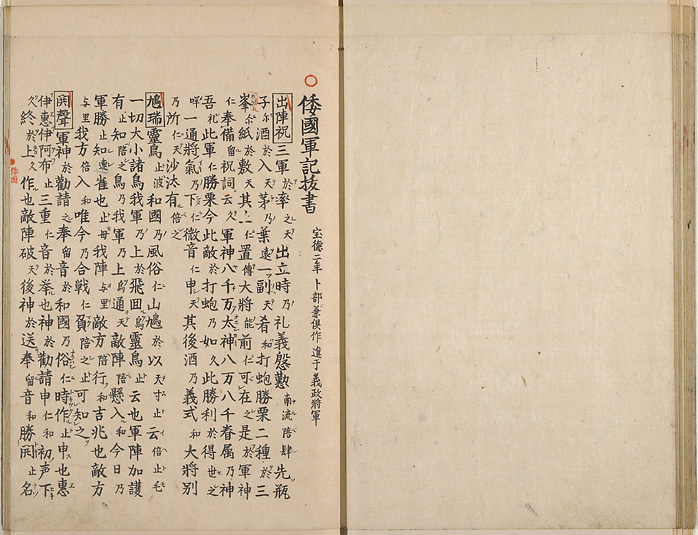 倭國軍記抜書
宝徳二年 卜部兼倶作 進于義政將軍
出陣祝 三軍於率之天出立時乃礼義慇懃 南流陪肆 先瓶
子尓酒於入天茅乃葉遠一副天肴和打蚫勝栗二種於三
峯尓紙於敷天其上仁置傳大將能前仁可在之是於軍神
仁奉備留祝詞云久軍神八千万大神八万八千眷属乃神
吾礼此軍仁勝栗今此敵於打蚫乃如久此勝利於得世之
呼一通將氣乃下仁微音仁申天其後酒乃義式和大將別
乃所仁天沙汰有倍之
鳩瑞 靈鳥止波和國乃風俗仁山鳩於以天寸止云倍止毛
一切大小諸鳥我軍乃上於飛囬靈鳥止云也軍陣加護
有止知陪之鳥乃我軍乃上通天敵陣陪懸入和今日乃
軍勝止知雀也止毋我陣与里敵方陪行和吉兆也敵方
与里我方陪入和唯今乃合戦仁負陪之止可知之
関聲 軍神於勧請之奉留音於和國乃俗仁時作止申也惠
伊惠伊阿布止三重仁音於举也神於勧請申仁和初声下
久終於上久作也敵陣破天後神於送奉留音和勝関止名